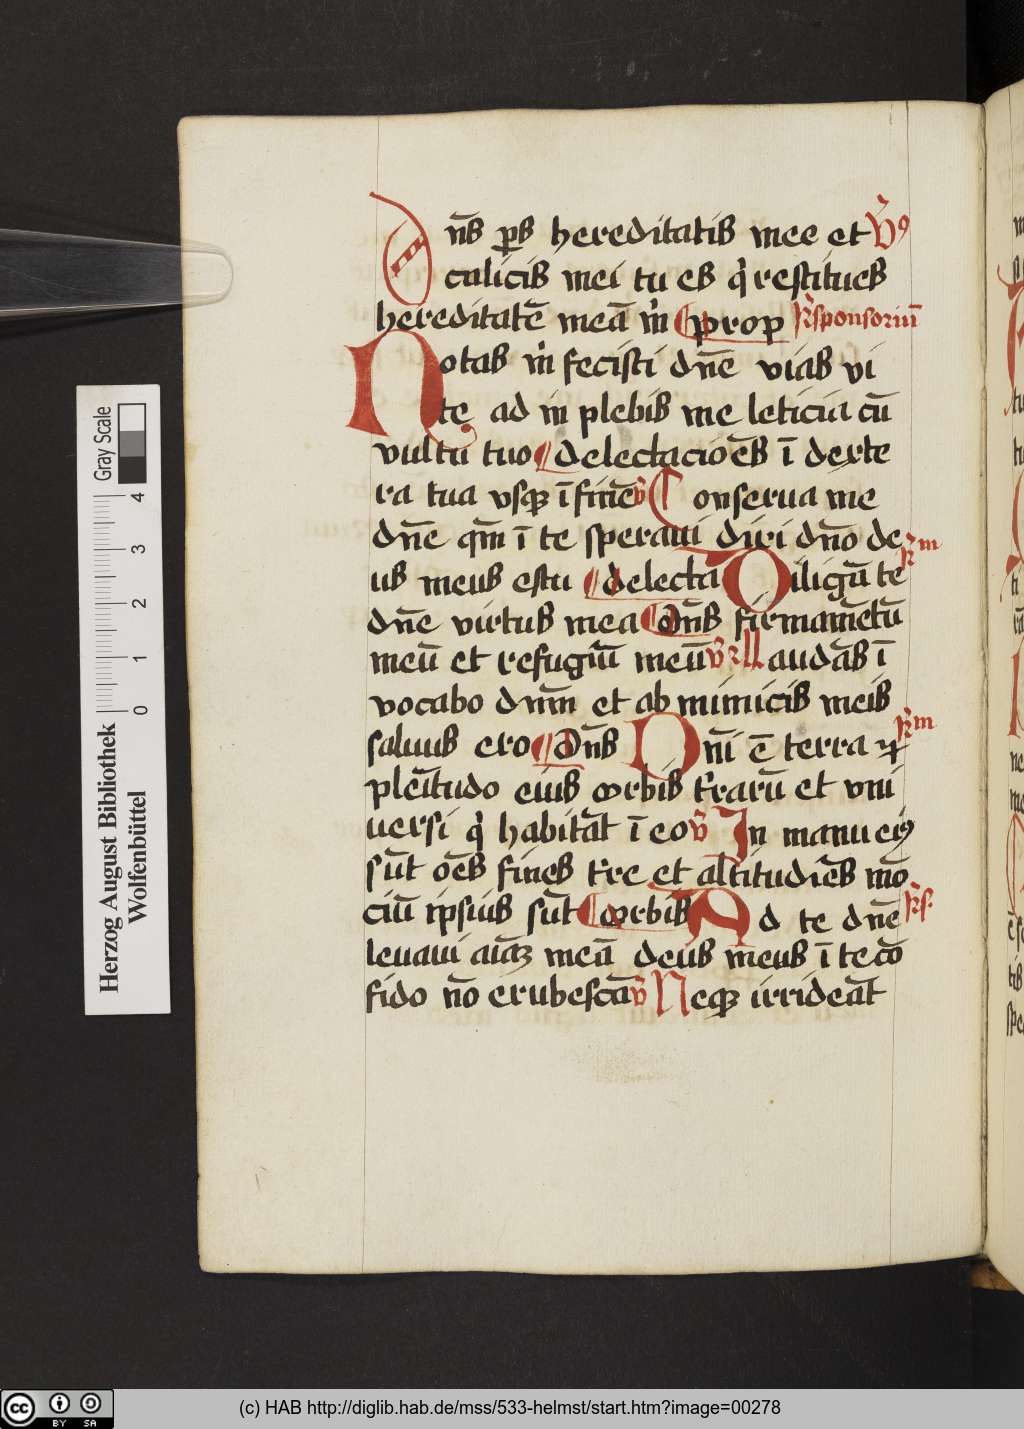 Dn̄s ꝑs hereditatis mee et v̄9
calicis mei tu es q͛ restitues
hereditatē meā m͛ ¶ prop R͛sponsoriū
Notas m͛ fecisti dn̄e vias vi
te ad īplebis me leticia cū
vultu tuo ¶ delectacioēs ī dexte
ra tua vsqꝫ ī finē v̄ Conserua me
dn̄e qm̄ ī te speraui dixi dn̄o de
us meus es tu ¶ delecta Diligā te R͛m
dn̄e virtus mea ¶ Dn̄s firmamētū
meū et refugiū meū v̄r Laudās ī
vocabo dn̄m et ab inimicis meis
saluus ero ¶ Dn̄s Dn̄i ē terra ⁊ R͛m
plēitudo eius orbis t͛rarū et vni
uersi q͛ habitāt ī eo v̄ In manu eiꝯ
sūt oēs fines t͛re et altitudiēs mō
ciū ipsius sūt ¶ orbis Ad te dn̄e R͛s.
leuaui aīaꝫ meā deus meus ī te cō
fido nō erubescā v̄ Neqꝫ irrideāt
Gray Scale
4
3
2
1
0
Herzog August Bibliothek
Wolfenbüttel
cc BY SA
(c) HAB http://diglib.hab.de/mss/533-helmst/start.htm?image=00278